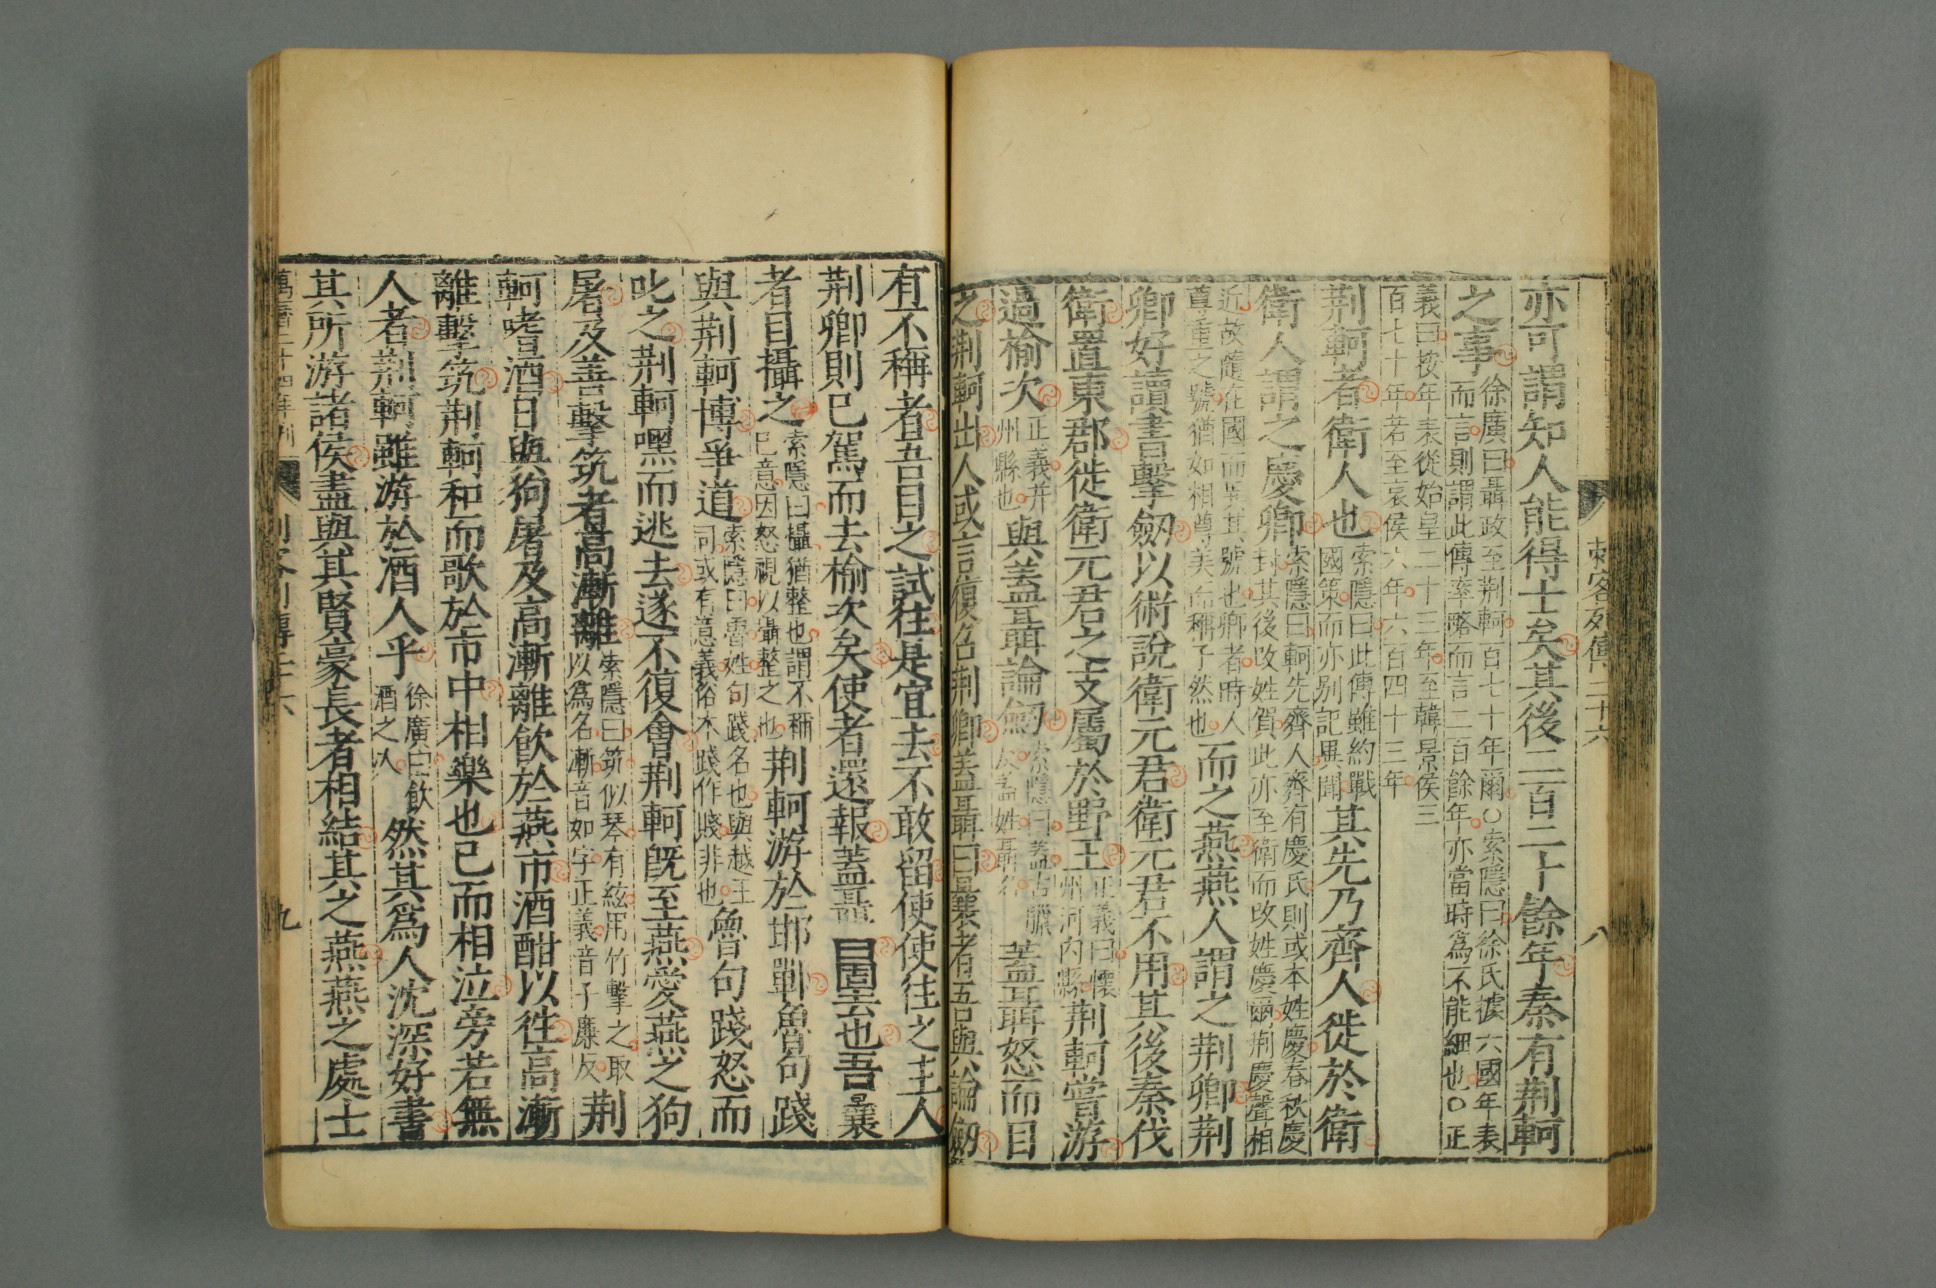 亦可謂知人能得士矣其後二百二十餘年秦有荆軻
之事徐廣曰聶政至荆軻百七十年爾○索隱曰徐氏據六國年表而言則謂此傳率略而言二百餘年亦當時爲不能細也○正
義曰按年表從始皇二十三年至韓景侯三百七十年若至哀侯六年六百四十三年
荆軻者衛人也索隱曰此傳雖約戰國策而亦别記異聞其先乃齊人徙於衛
衛人謂之慶卿索隱曰軻先齊人齊有慶氏則或本姓慶春秋慶封其後改姓賀此亦至衛而改姓慶爾荆慶聲相
近故隨在國而異其號也卿者時人尊重之號猶如相尊美而稱子然也而之燕燕人謂之荆卿荆
卿好讀書擊劒以術說衛元君衛元君不用其後秦伐
衛置東郡徙衛元君之支屬於野王正義曰懷州河内縣荆軻嘗游
過榆次正義并州縣也與蓋聶論劒索隱曰蓋古臘反蓋姓聶名蓋聶怒而目
之荆軻出人或言復召荆卿蓋聶曰曩者吾與論劒
有不稱者吾目之試往是宜去不敢留使使往之主人
荆卿則已駕而去榆次矣使者還報蓋聶曰固去也吾曩
者目攝之索隱曰攝猶整也謂不稱已意因怒視以攝整之也荆軻游於邯鄲魯句踐
與荆軻博爭道索隱曰魯姓句踐名也與越王同或有意義俗本踐作賤非也魯句踐怒而
叱之荆軻嘿而逃去遂不復會荆軻旣至燕愛燕之狗
屠及善擊筑者高漸離索隱曰筑似琴有絃用竹擊之取以爲名漸音如字正義音子廉反荆
軻嗜酒日與狗屠及高漸離飲於燕市酒酣以徃高漸
離擊筑荆軻和而歌於市中相樂也已而相泣旁若無
人者荆軻雖游於酒人乎徐廣曰飲酒之人然其爲人沈深好書
其所游諸侯盡與其賢豪長者相結其之燕燕之處士
刺客列傳二十六
八
九